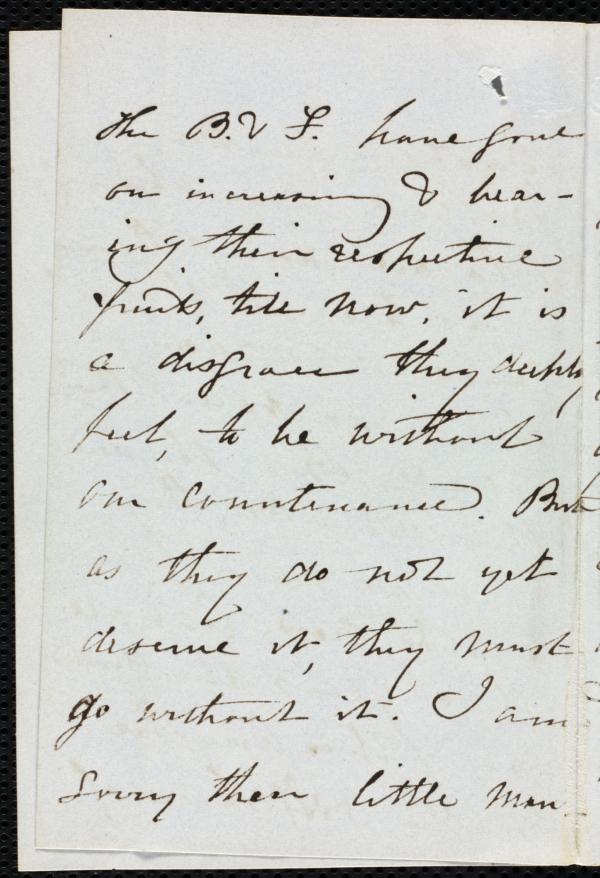 the B. & F. have gone
on increasing & bear-
ing their respective
fruits, till now, it is
a disgrace they deeply
feel, to be without
our countenance. But
as they do not yet
deserve it, they must
go without it. I am
Sorry then little Mon-